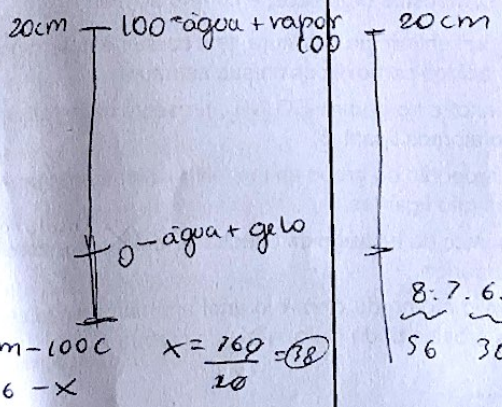 20cm 100 - água + vapor
0 - água + gelo
m - 100C x = 760/20 = 38
6 - x
100 20 cm
8.7.6.
56 30